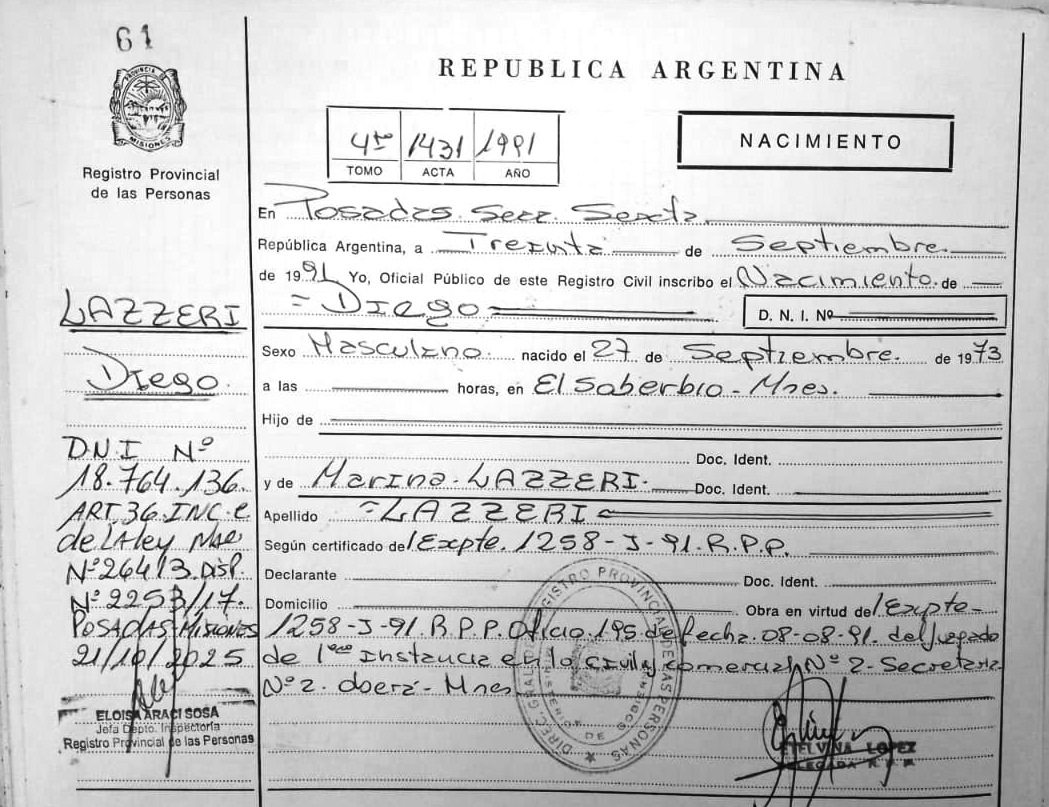 61
PROVINCIA DE
MISIONES
Registro Provincial
de las Personas
REPUBLICA ARGENTINA
4to 1431 1991
TOMO ACTA AÑO
NACIMIENTO
En Posadas. Secc. Sexta.
República Argentina, a Treinta de Septiembre.
de 1991 Yo, Oficial Público de este Registro Civil inscribo el Nacimiento. de
= Diego D. N. I. Nº
Sexo Masculino. nacido el 27 de Septiembre. de 1973
a las horas, en El Soberbio - Mnes.
Hijo de
Doc. Ident.
y de Marina - LAZZERI. Doc. Ident.
Apellido = LAZZERI =
Según certificado de l Expte. 1258-J-91. R.P.P.
Declarante Doc. Ident.
Domicilio Obra en virtud de l Expte-
1258-J-91. R.P.P. Oficio. 195 de fecha. 08-08-91. del Juzgado
de 1era Instancia en lo Civil y Comercial Nº 2 - Secretaria
Nº 2. Oberá - Mnes.
LAZZERI
Diego.
D.N.I Nº
18.764.136.
ART. 36. INC. c
de LA ley Nac
Nº 26413. DISP.
Nº 2253/17.
POSADAS-MISIONES
21/10/2025
ELOISA ARACI SOSA
Jefa Depto. Inspectoria
Registro Provincial de las Personas
DIREC. GRAL. DEL REGISTRO PROVINCIAL DE LAS PERSONAS
MINISTERIO DE GOBIERNO
ETELVINA LOPEZ
DELEGADA R. P. P.